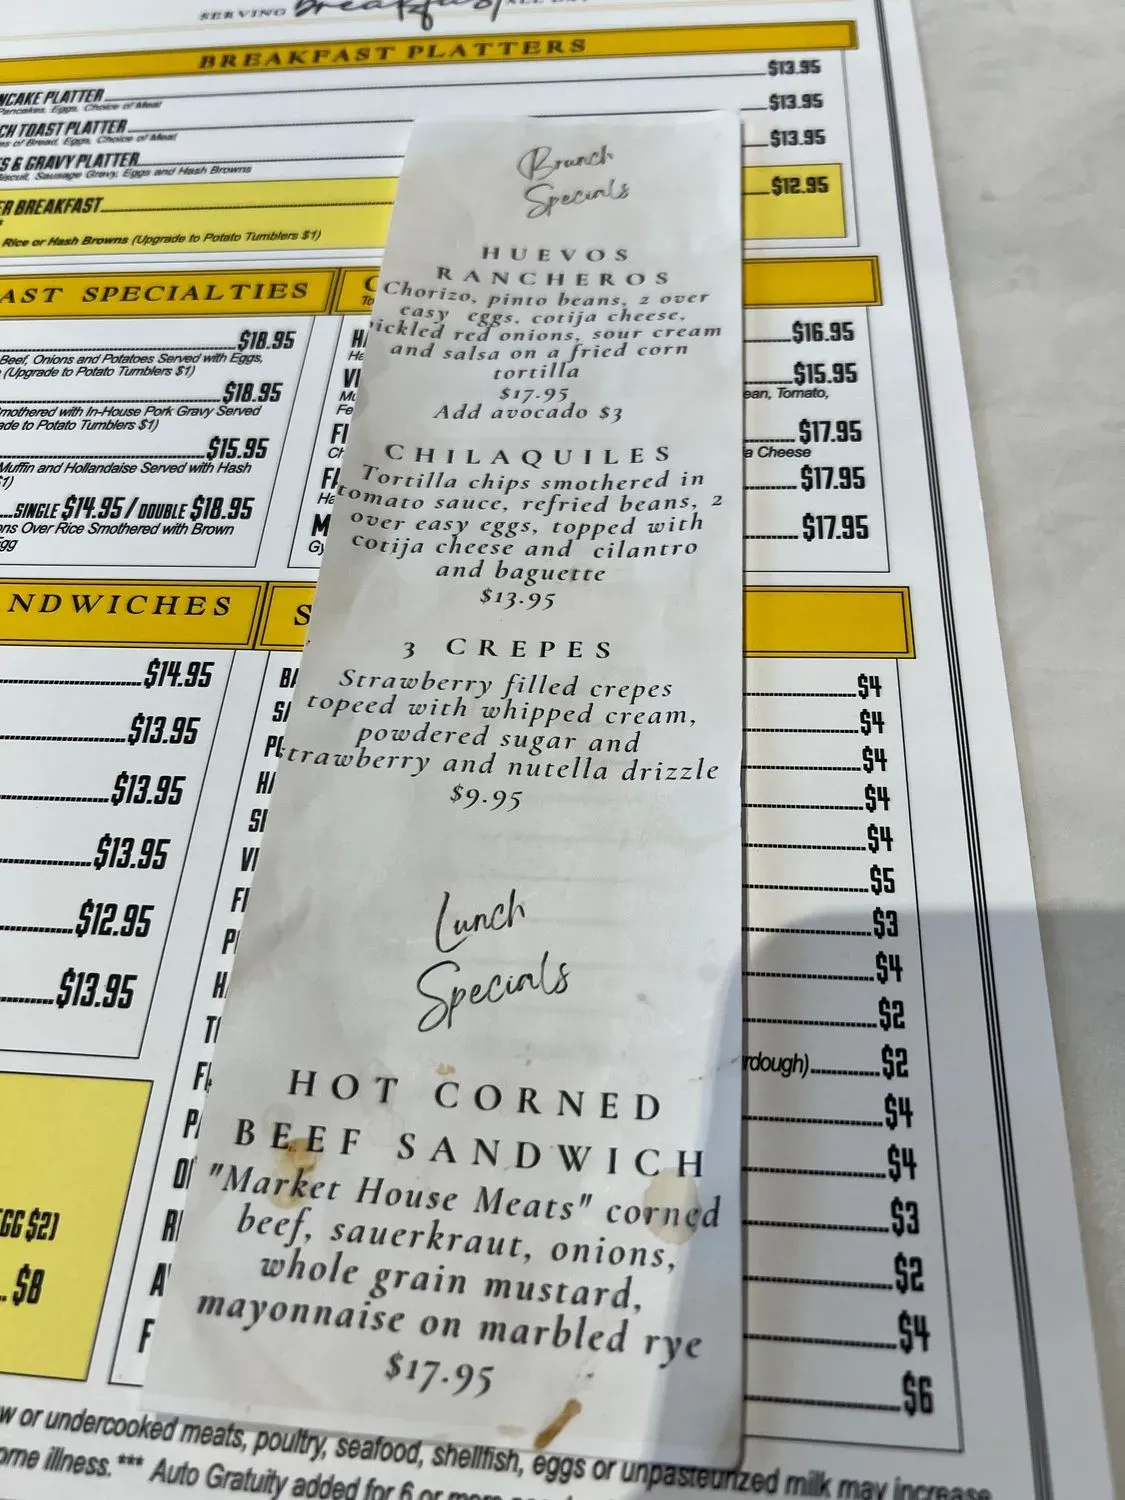 SERVING Breakfast ALL DAY
BREAKFAST PLATTERS
$13.95
NCAKE PLATTER
Pancakes, Eggs, Choice of Meat
$13.95
CH TOAST PLATTER
es of Bread, Eggs, Choice of Meat
$13.95
S & GRAVY PLATTER
Biscuit, Sausage Gravy, Eggs and Hash Browns
$12.95
ER BREAKFAST
Rice or Hash Browns (Upgrade to Potato Tumblers $1)
AST SPECIALTIES
$18.95
Beef, Onions and Potatoes Served with Eggs,
(Upgrade to Potato Tumblers $1)
$18.95
mothered with In-House Pork Gravy Served
ade to Potato Tumblers $1)
$15.95
Muffin and Hollandaise Served with Hash
$1)
SINGLE $14.95 / DOUBLE $18.95
ns Over Rice Smothered with Brown
gg
NDWICHES
$14.95
$13.95
$13.95
$13.95
$12.95
$13.95
GG $2)
$8
Brunch
Specials
HUEVOS
RANCHEROS
Chorizo, pinto beans, 2 over
easy eggs, cotija cheese,
pickled red onions, sour cream
and salsa on a fried corn
tortilla
$17.95
Add avocado $3
CHILAQUILES
Tortilla chips smothered in
tomato sauce, refried beans, 2
over easy eggs, topped with
cotija cheese and cilantro
and baguette
$13.95
3 CREPES
Strawberry filled crepes
topeed with whipped cream,
powdered sugar and
strawberry and nutella drizzle
$9.95
Lunch
Specials
HOT CORNED
BEEF SANDWICH
"Market House Meats" corned
beef, sauerkraut, onions,
whole grain mustard,
mayonnaise on marbled rye
$17.95
$16.95
$15.95
ean, Tomato,
$17.95
a Cheese
$17.95
$17.95
$4
$4
$4
$4
$4
$5
$3
$4
$2
rdough) $2
$4
$4
$3
$2
$4
$6
w or undercooked meats, poultry, seafood, shellfish, eggs or unpasteurized milk may increase
orne illness. *** Auto Gratuity added for 6 or more